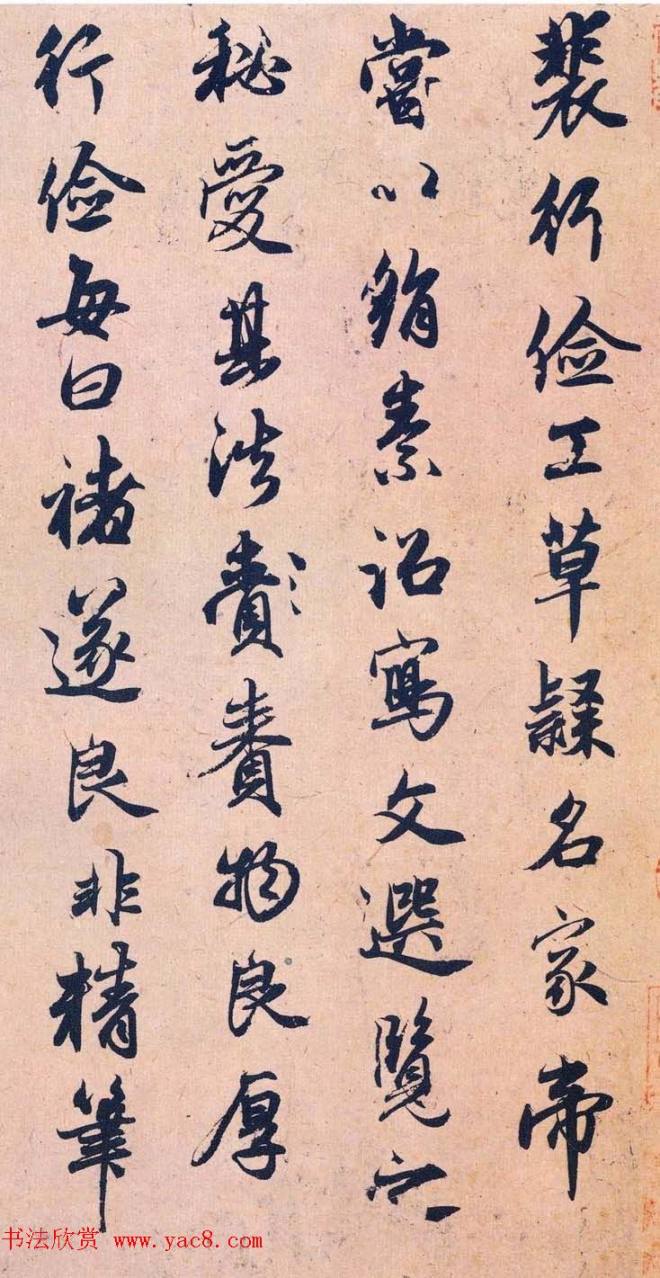 裴行儉工草隸名家帝
嘗以絹素詔寫文選覽之
秘愛其法賚賚物良厚
行儉每曰褚遂良非精筆
书法欣赏 www.yac8.com